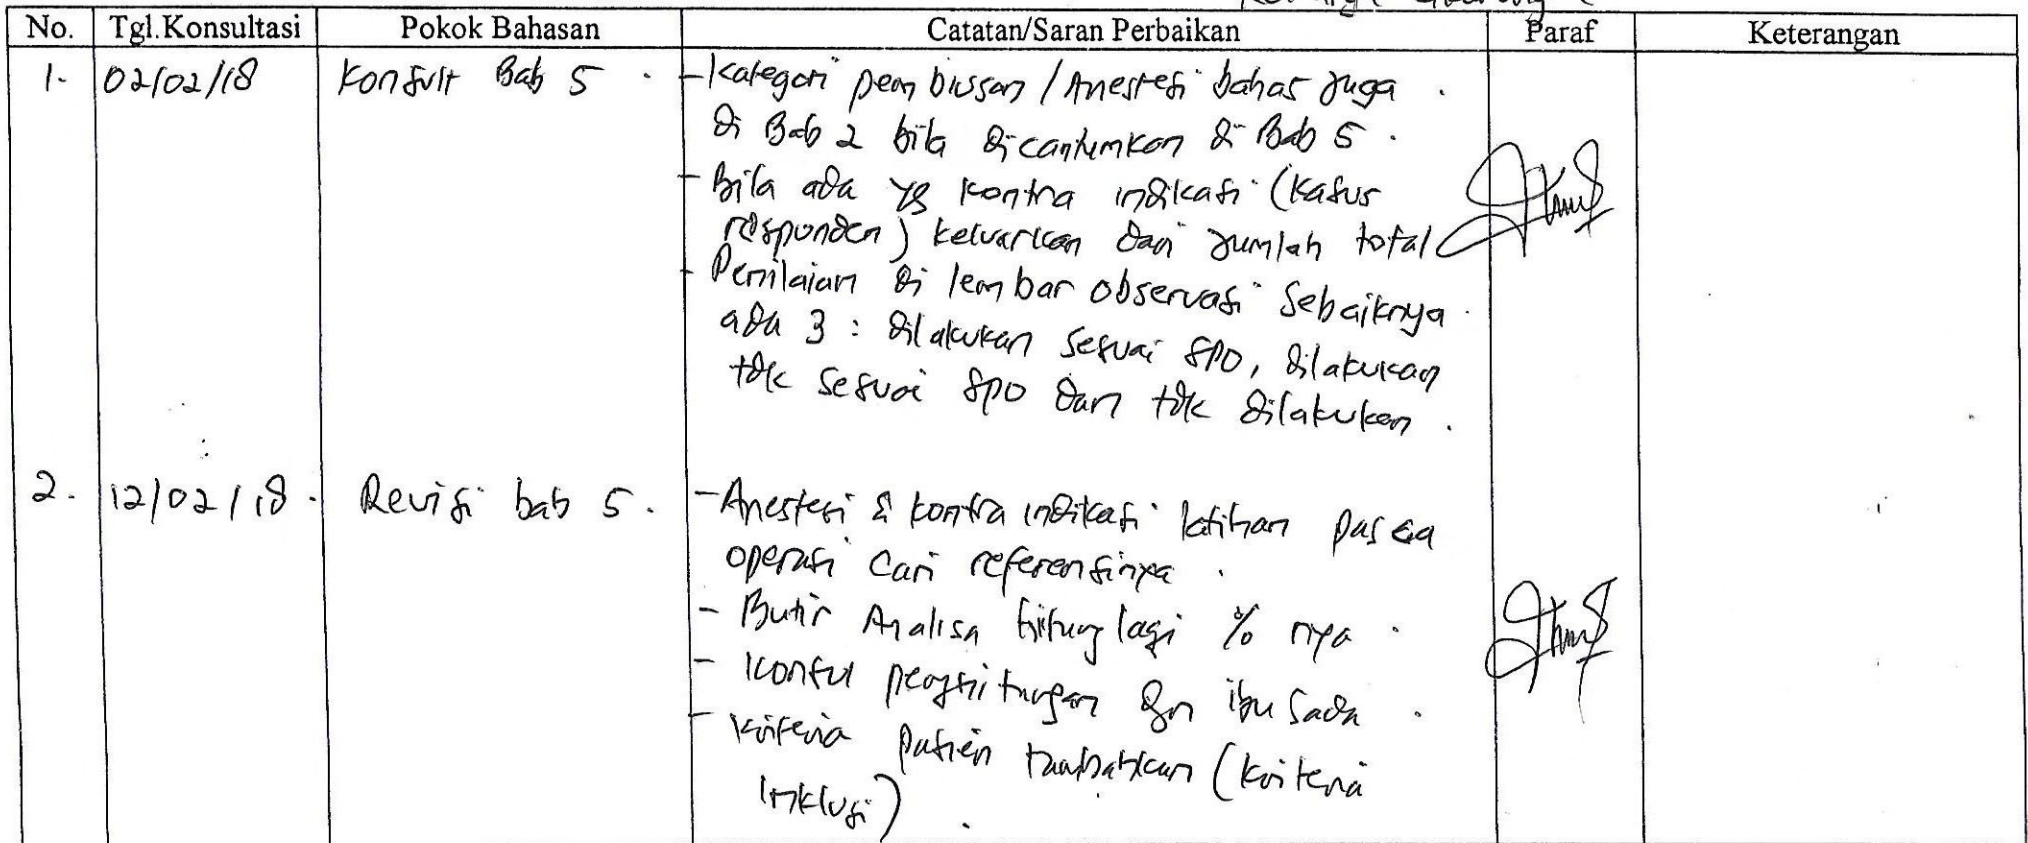 No. Tgl.Konsultasi Pokok Bahasan Catatan/Saran Perbaikan Paraf Keterangan
1. 02/02/18 Konsult Bab 5 . - Kategori pembiusan / Anestesi bahas juga .
di Bab 2 bila dicantumkan di Bab 5 .
- Bila ada yg kontra indikasi (kasus
responden) keluarkan dari jumlah total
- Penilaian di lembar observasi sebaiknya
ada 3 : dilakukan sesuai SPO, dilakukan
tdk sesuai SPO dan tdk dilakukan .
2. 12/02/18 . Revisi bab 5 . - Anestesi & kontra indikasi latihan pasca
operasi cari referensinya .
- Butir Analisa hitung lagi % nya .
- Konsul penghitungan dgn ibu .
- Kriteria pasien tambahkan (kriteria
inklusi) .